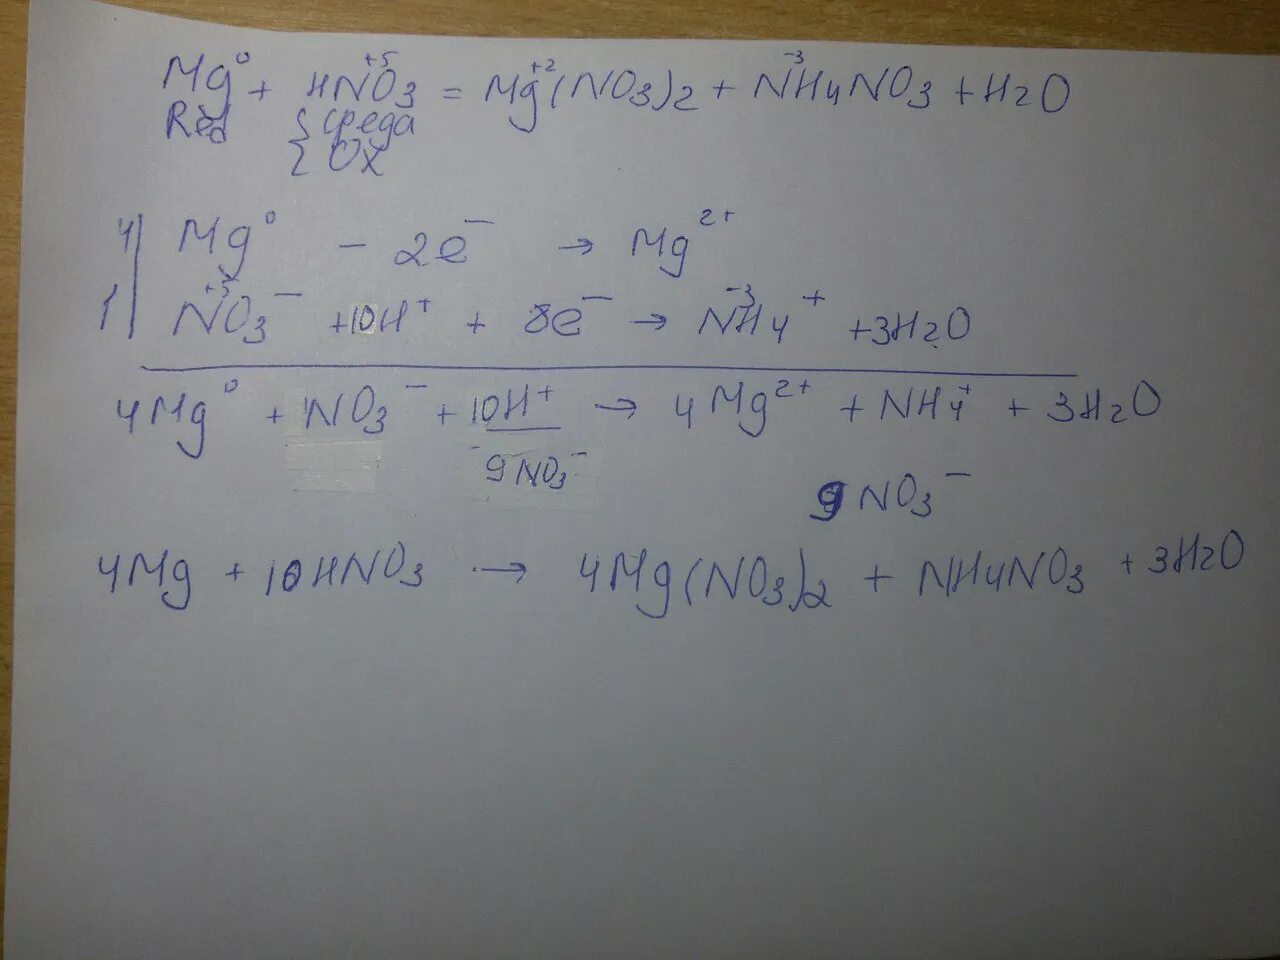 Mg⁰ + HN⁺⁵O₃ = Mg⁺²(NO₃)₂ + N⁻³H₄NO₃ + H₂O
Red { среда
{ Ox
4 | Mg⁰ − 2e⁻ → Mg²⁺
1 | N⁺⁵O₃⁻ + 10H⁺ + 8e⁻ → N⁻³H₄⁺ + 3H₂O
4Mg⁰ + 1NO₃⁻ + 10H⁺ → 4Mg²⁺ + NH₄⁺ + 3H₂O
9NO₃⁻ 9NO₃⁻
4Mg + 10HNO₃ → 4Mg(NO₃)₂ + NH₄NO₃ + 3H₂O